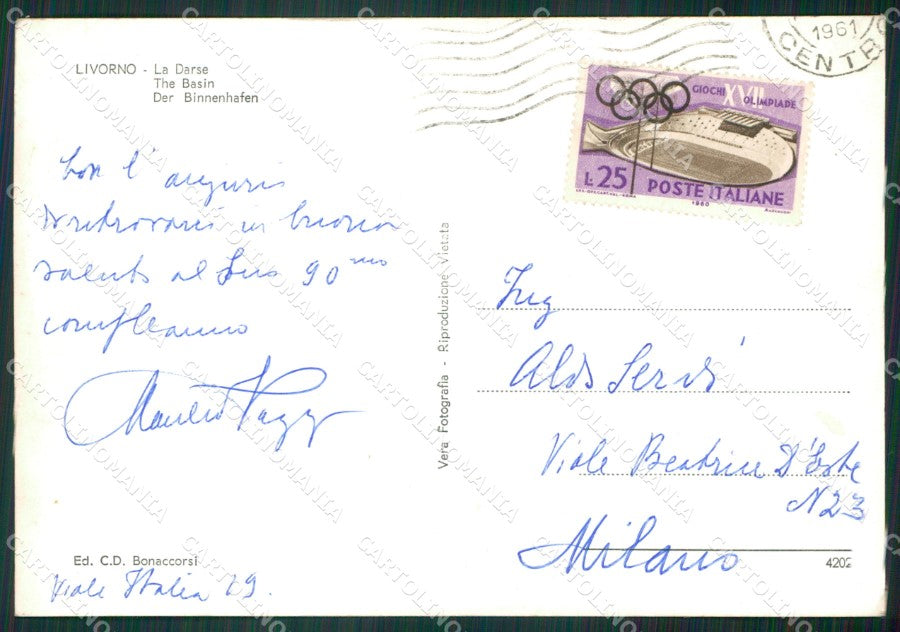 LIVORNO - La Darse
The Basin
Der Binnenhafen
1961
CENTR
GIOCHI XVII OLIMPIADE
L. 25 POSTE ITALIANE
1960
Con l'augurio
di ritrovarci in buona
salute al Suo 90mo
compleanno
Vera Fotografia - Riproduzione Vietata
Ing
Aldo Servi
Viale Beatrice D'Este
N 23
Milano
Ed. C.D. Bonaccorsi
4202
Viale Italia 29.
CARTOLINOMANIA